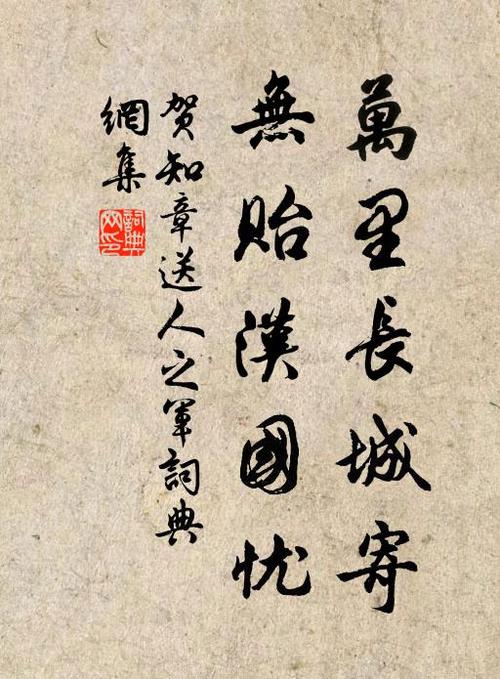 萬里長城寄
無貽漢國忧
賀知章送人之軍詞典
網集
詞典
网印